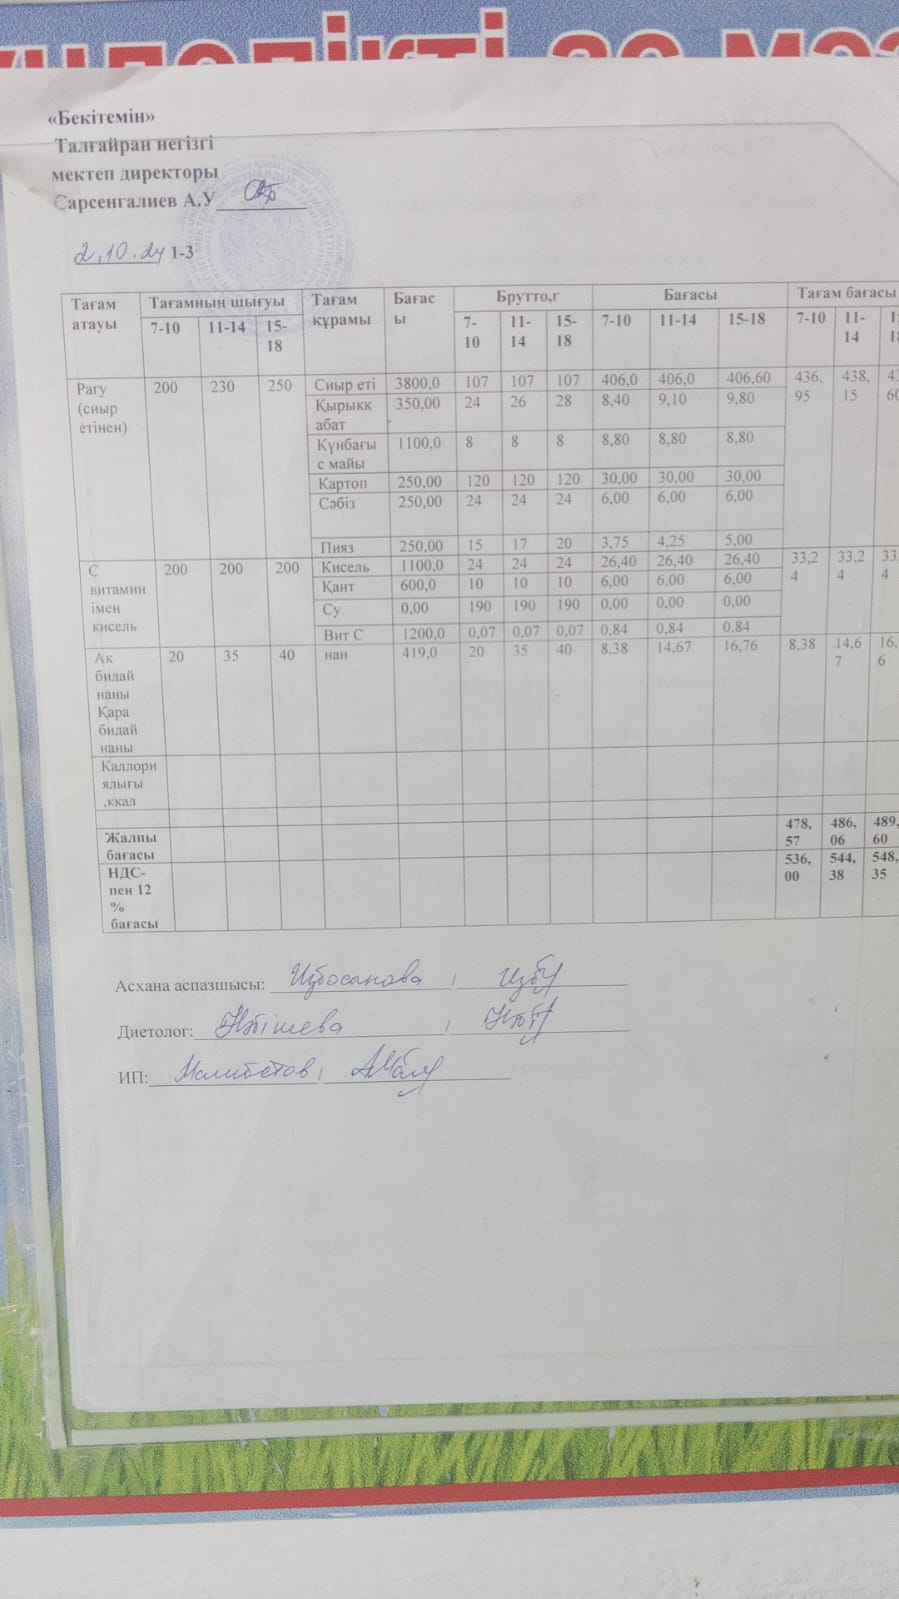 «Бекітемін»
Талғайран негізгі
мектеп директоры
Сарсенгалиев А.У
2.10.24 1-3
Тағам атауы Тағамның шығуы Тағам құрамы Бағасы Брутто,г Бағасы Тағам бағасы
7-10 11-14 15-18 7-10 11-14 15-18 7-10 11-14 15-18 7-10 11-14
Рагу (сиыр етінен) 200 230 250 Сиыр еті 3800,0 107 107 107 406,0 406,0 406,60 436,95 438,15
Қырыккабат 350,00 24 26 28 8,40 9,10 9,80
Күнбағыс майы 1100,0 8 8 8 8,80 8,80 8,80
Картоп 250,00 120 120 120 30,00 30,00 30,00
Сәбіз 250,00 24 24 24 6,00 6,00 6,00
Пияз 250,00 15 17 20 3,75 4,25 5,00
С витаминімен кисель 200 200 200 Кисель 1100,0 24 24 24 26,40 26,40 26,40 33,24 33,24 33 4
Қант 600,0 10 10 10 6,00 6,00 6,00
Су 0,00 190 190 190 0,00 0,00 0,00
Вит С 1200,0 0,07 0,07 0,07 0,84 0,84 0,84
Ак бидай наны Қара бидай наны 20 35 40 нан 419,0 20 35 40 8,38 14,67 16,76 8,38 14,67 16, 6
Каллориялығы ,ккал
Жалпы бағасы 478,57 486,06 489,60
НДС-пен 12 % бағасы 536,00 544,38 548,35
Асхана аспазшысы:
Диетолог:
ИП: